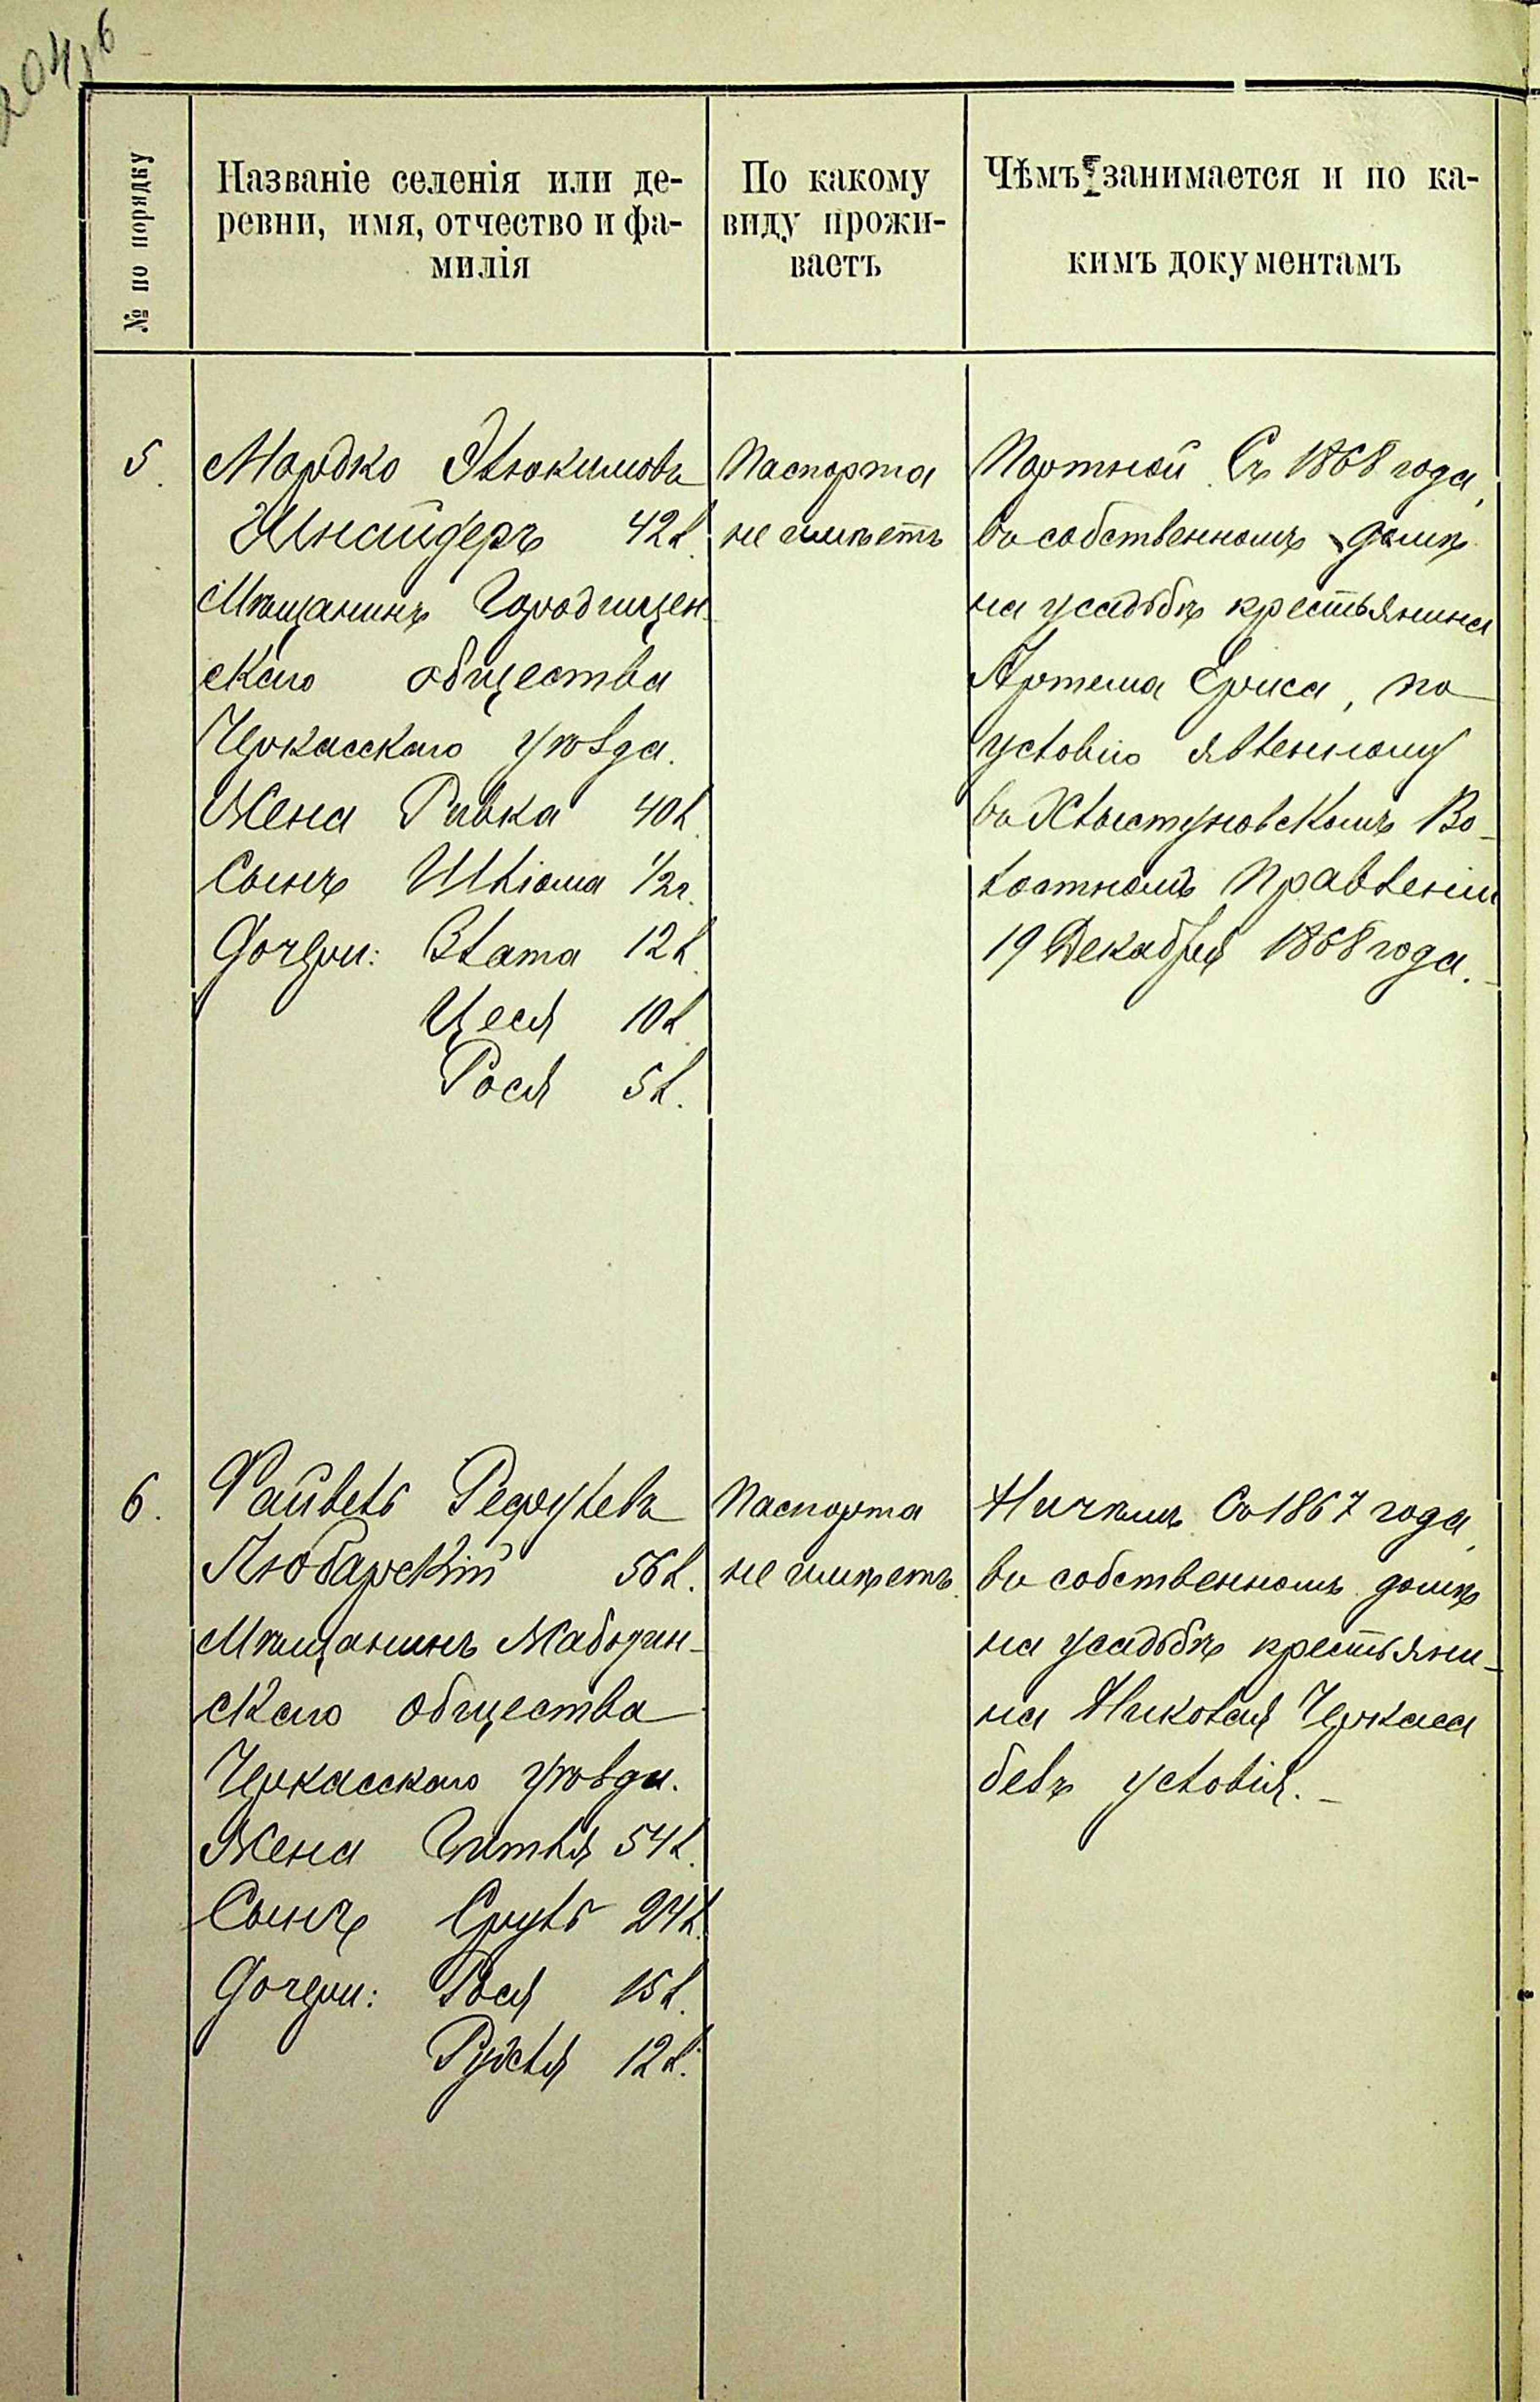 204 об
№ по порядку
Названіе селенія или де-
ревни, имя, отчество и фа-
милія
По какому
виду прожи-
ваетъ
Чѣмъ занимается и по ка-
кимъ документамъ
5.
Мордко Элюкимовъ
Шнайдеръ 42 л.
Мѣщанинъ Городищен-
скаго общества
Черкасскаго уѣзда.
Жена Ривка 40 л.
Сынъ Шліома 1/2 г.
Дочери: Злата 12 л.
Цеся 10 л.
Рося 5 л.
Паспорта
не имѣетъ
Портной. Съ 1868 года,
въ собственномъ домѣ
на усадьбѣ крестьянина
Артема Ериса, по
условію явленному
въ Хлыстуновскомъ Во-
лостномъ Правленіи
19 Декабря 1868 года.
6.
Файвель Рефулевъ
Любарскій 56 л.
Мѣщанинъ Жаботин-
скаго общества
Черкасскаго уѣзда.
Жена Гитля 54 л.
Сынъ Сруль 24 л.
Дочери: Рося 15 л.
Рухля 12 л.
Паспорта
не имѣетъ.
Ничѣмъ. Съ 1867 года,
въ собственномъ домѣ
на усадьбѣ крестьяни-
на Николая Черкаса
безъ условія. –